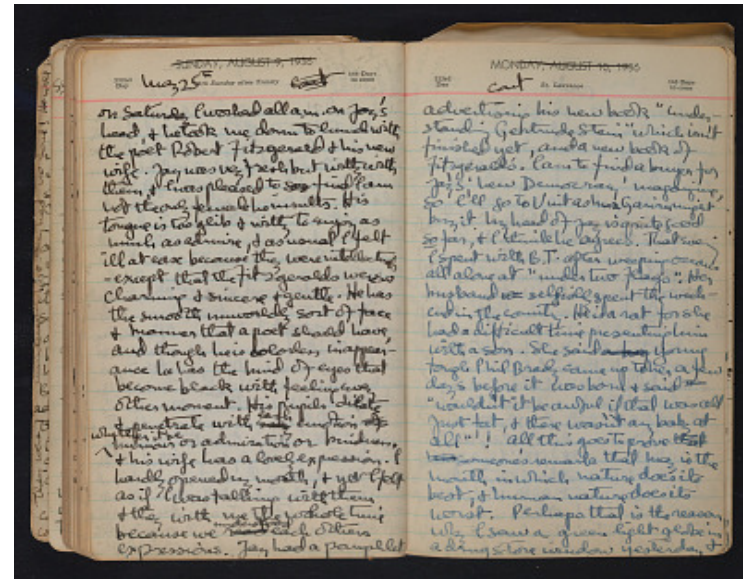 SUNDAY, AUGUST 9, 1936
May 25th
cont
on Saturday I worked all a.m. on Jay's
head, & he took me down to lunch with
the poet Robert Fitzgerald & his new
wife. Jay was very fresh but witty with
them, & I was pleased to find I am
not the only female he insults. His
tongue is too glib & witty to enjoy as
much as admire, & as usual I felt
ill at ease because they were intellectuals
- except that the Fitzgeralds were so
charming & sincere & gentle. He has
the smooth unworldly sort of face
& manner that a poet should have,
and though he is colorless in appear-
ance he has the kind of eyes that
become black with feeling every
other moment. His pupils dilate
& penetrate with emotion
whether it be
humour or admiration or kindness.
& his wife has a lovely expression. I
hardly opened my mouth, & yet I felt
as if I was talking with them
& they with me the whole time
because we understood each others
expressions. Jay had a pamphlet
MONDAY, AUGUST 10, 1936
cont
St. Lawrence
advertising his new book "Under-
standing Gertrude Stein" which isn't
finished yet, and a new book of
Fitzgerald's. I am to find a buyer for
Jay's 'New Democracy' magazine,
so I'll go to
buy it. My head of Jay is quite good
so far, & I think he agrees. That evening
I spent with B.T. after weeping oceans
all alone at "Under Two Flags". Her
husband selfishly spent the week-
end in the country. He is a rat for she
had a difficult time presenting him
with a son. She said young
tough Phil came up to her a few
days before it was born & said
"wouldn't it be awful if that was all
just fat, & there wasn't any baby at
all"! All this goes to prove
someone's remarks that May is the
month in which nature does its
best, & human nature does its
worst. Perhaps that is the reason
why I saw a green light globe in
a dime store window yesterday &